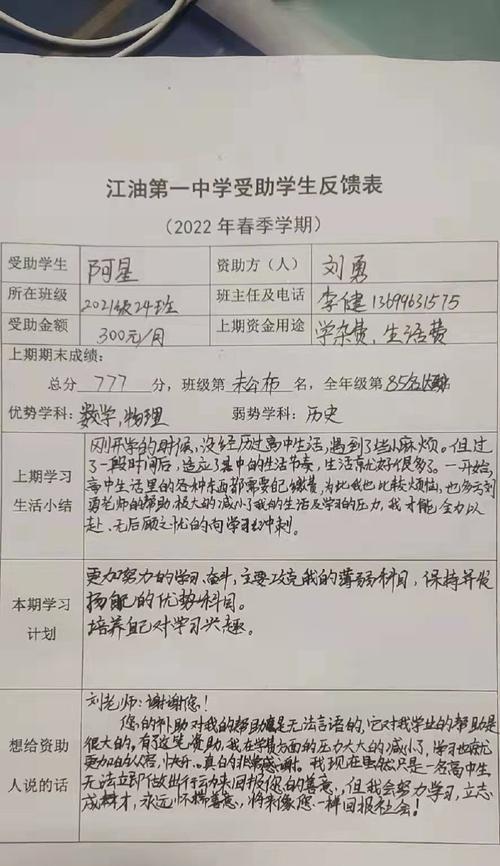 江油第一中学受助学生反馈表
（2022 年春季学期）
受助学生 阿星 资助方（人） 刘勇
所在班级 2021级24班 班主任及电话 李健13699631575
受助金额 300元/月 上期资金用途 学杂费、生活费
上期期末成绩：
总分 777 分，班级第 未公布 名，全年级第 85名
优势学科：数学,物理 弱势学科：历史
上期学习
生活小结
刚开学的时候，没经历过高中生活，遇到了些小麻烦。但过
了一段时间后，适应了高中的生活节奏，生活就好很多了。一开始，
高中生活里的各种东西都需要缴费，为此我也比较烦恼，也多亏刘
勇老师的帮助，极大的减小了我的生活及学习的压力，我才能全力以
赴、无后顾之忧的向学习冲刺。
本期学习
计划
更加努力的学习、奋斗，主要攻克我的薄弱科目，保持并发
扬自己的优势科目。
培养自己对学习兴趣。
想给资助
人说的话
刘老师：谢谢您！
您的补助对我的帮助是无法言语的，它对我学业的帮助是
很大的。有了这笔资助，我在学费方面的压力大大的减小了，学习也就尤
更加的从容、快乐。真的非常感谢。我现在虽然只是一名高中生
无法立即做出行动来回报您的善意，但我会努力学习，立志
成才，永远怀揣善意，将来像您一样回报社会！